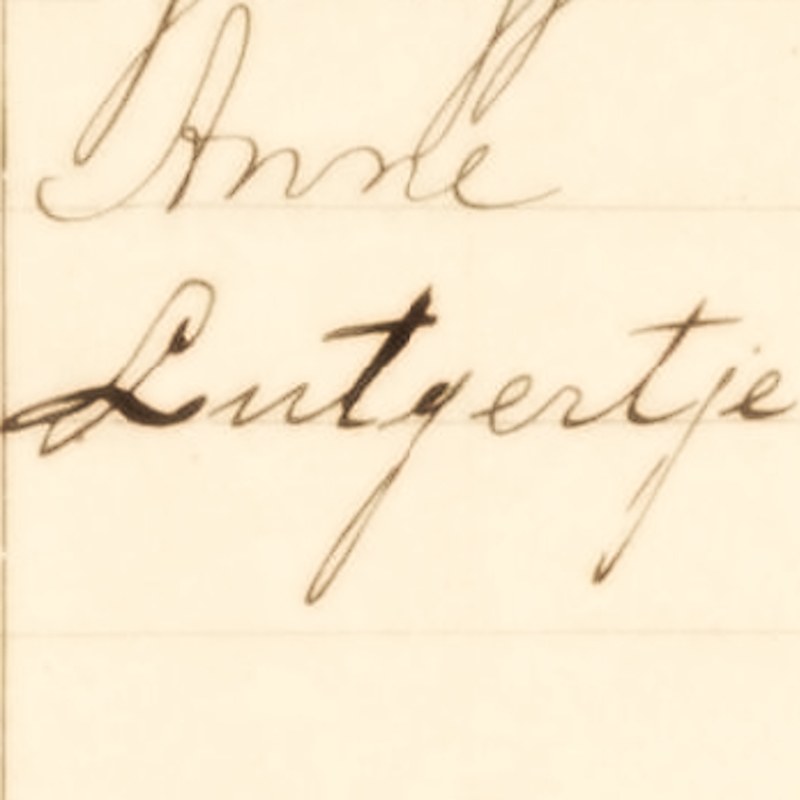 Anne
Lutgertje